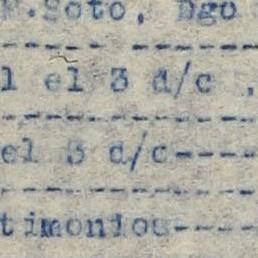 M.Soto, Dgo
l el 3 d/c .
el 3 d/c----
timonios----